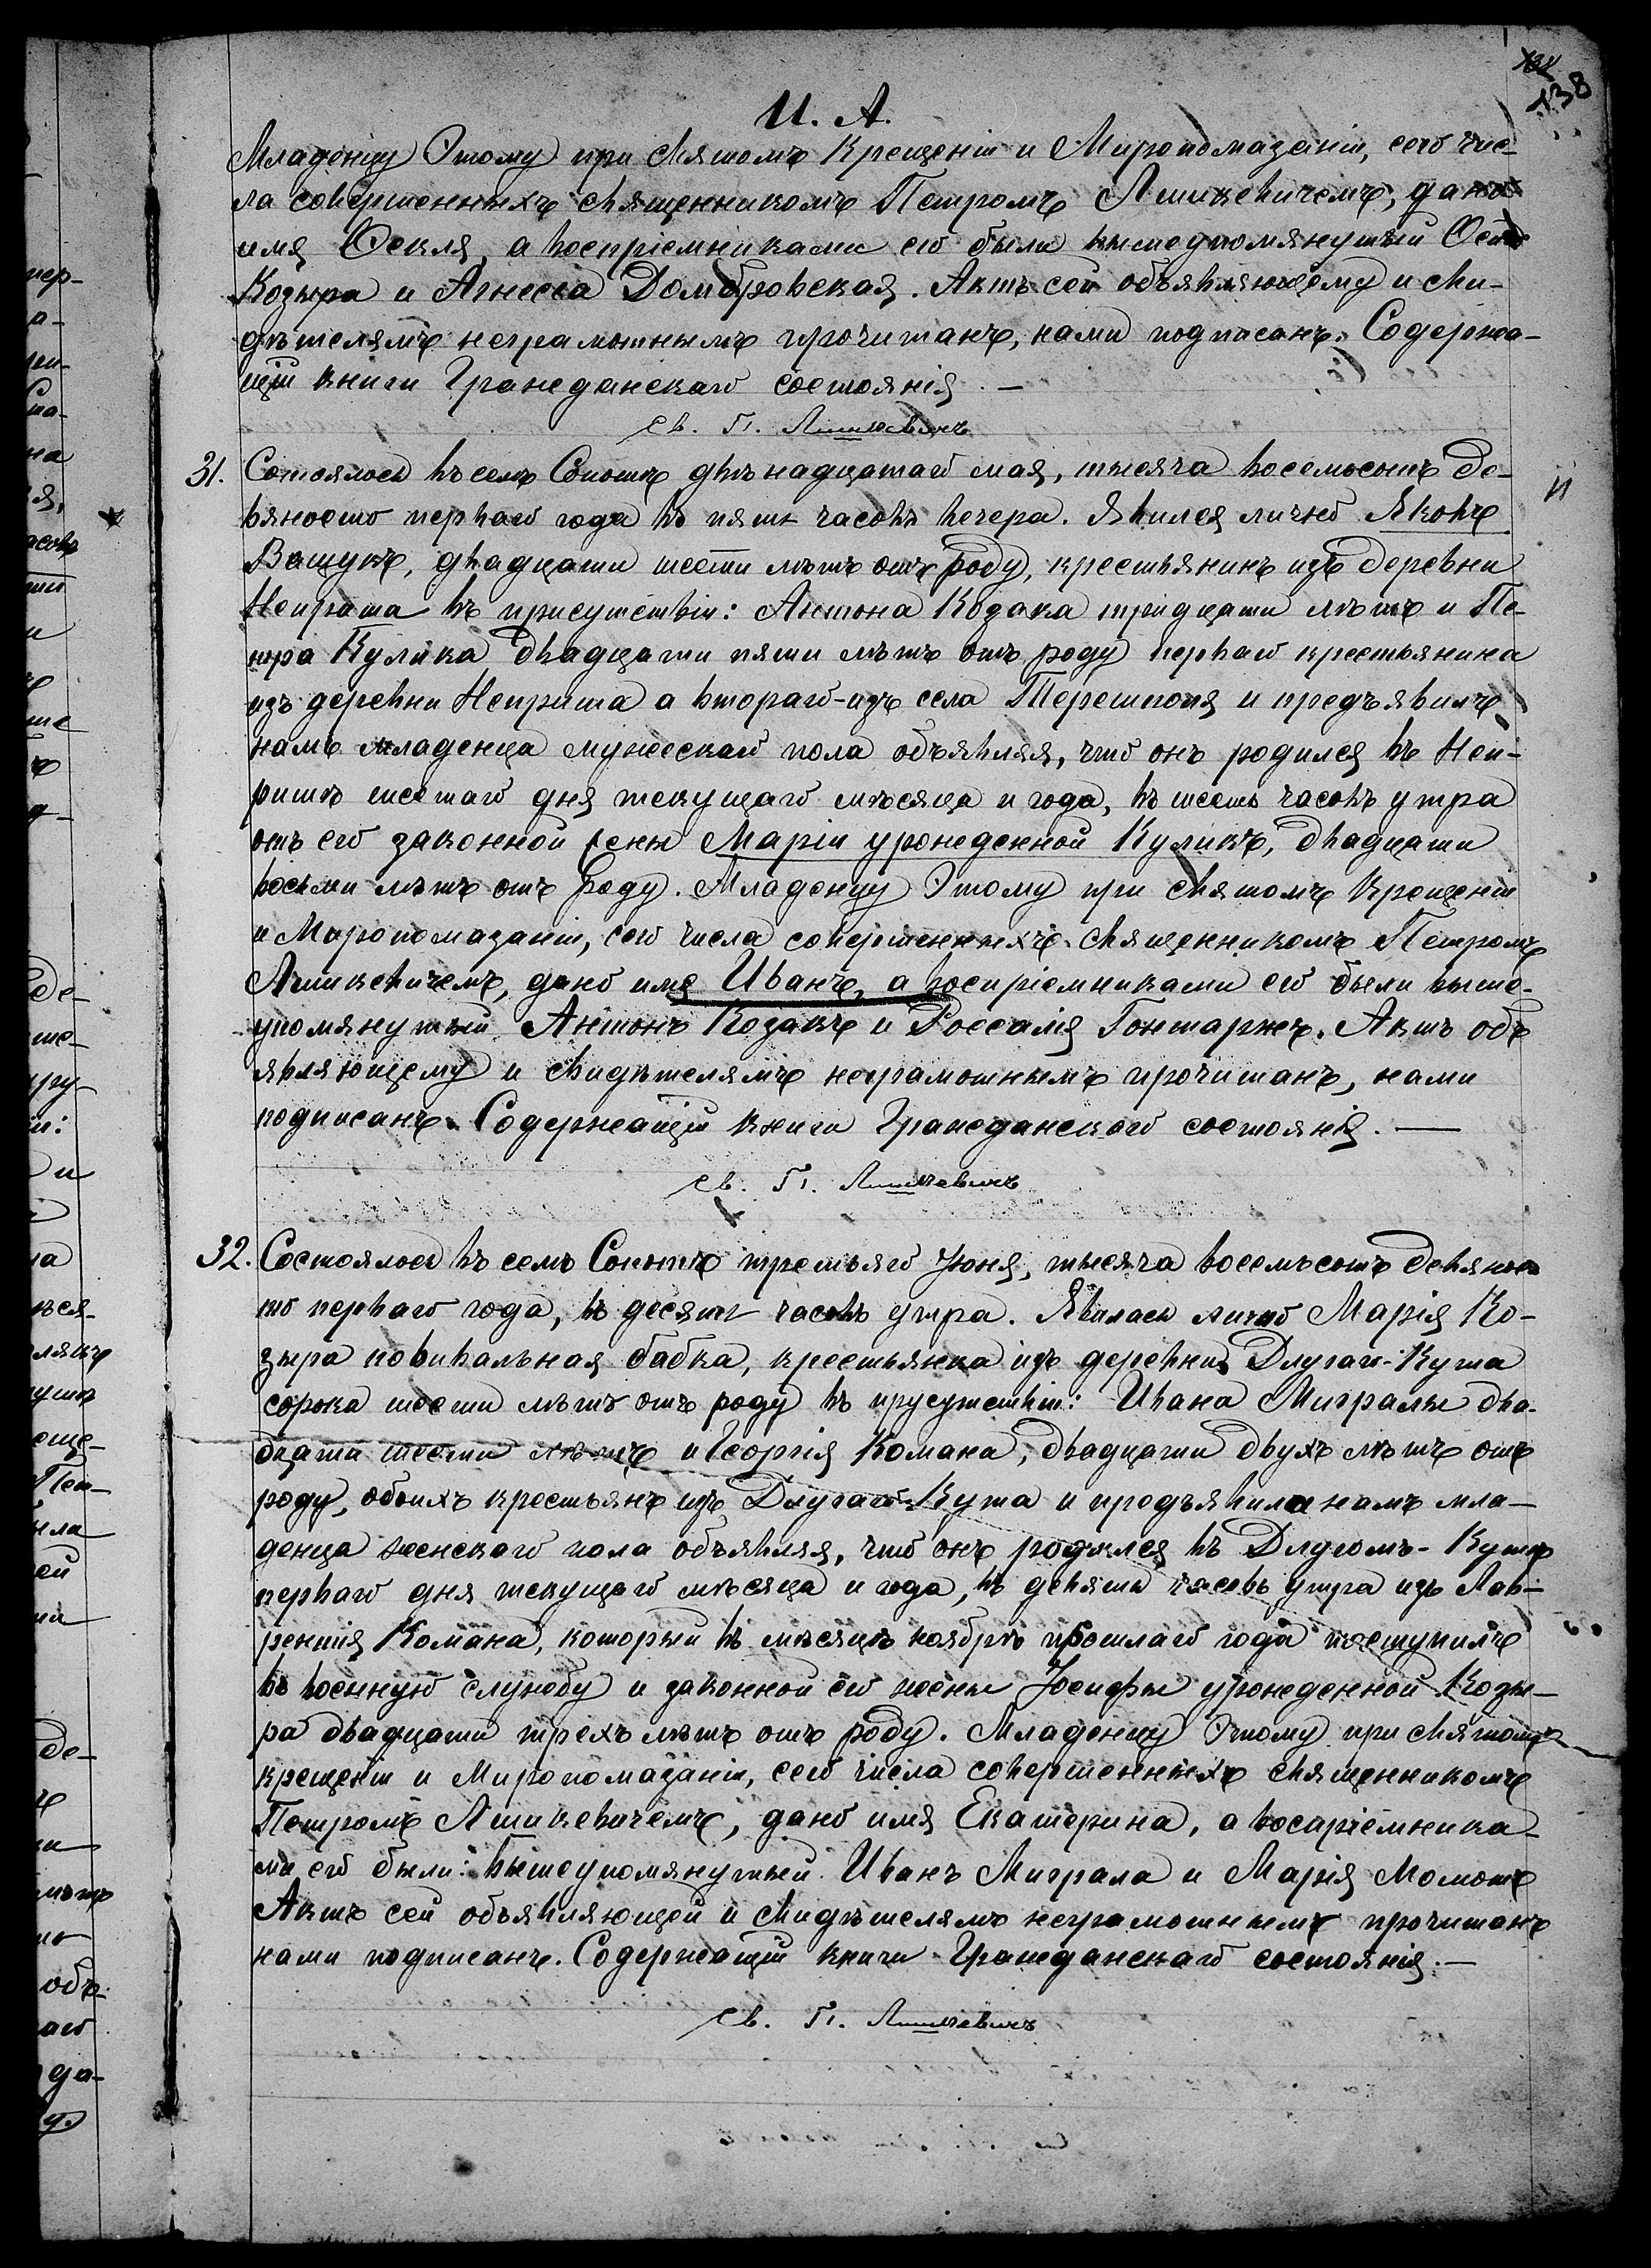 138
И. А.
Младенцу Этому при Святомъ Крещеніи и Миропомазаніи, сего чис-
ла совершенныхъ священникомъ Петромъ Лишкевичемъ, дано
имя Ѳекля, а воспріемниками его были вышеупомянутый
Козыра и Агнесса Домбровская. Актъ сей объявляющему и сви-
дѣтелямъ неграмотнымъ прочитанъ, нами подписанъ. Содержа-
щій книги Гражданскаго состоянія. —
Св. П. Лишкевичъ
31. Состоялось въ селѣ Сопотѣ двѣнадцатаго мая, тысяча восемьсотъ де-
вяносто перваго года въ пять часовъ вечера. Явился лично Яковъ
Ващукъ, двадцати шести лѣтъ отъ роду, крестьянинъ изъ деревни
Неприша въ присутствіи: Антона Козака тридцати лѣтъ и Пе-
тра Кулика двадцати пяти лѣтъ отъ роду перваго крестьянина
изъ деревни Неприша а втораго-изъ села Терешполя и предъявилъ
намъ младенца мужескаго пола объявляя, что онъ родился въ Неп-
ришѣ шестаго дня текущаго мѣсяца и года, въ шесть часовъ утра
отъ его законной жены Маріи урожденной Куликъ, двадцати
восьми лѣтъ отъ роду. Младенцу Этому при святомъ Крещеніи
и Миропомазаніи, сего числа совершенныхъ священникомъ Петромъ
Лишкевичемъ, дано имя Иванъ, а воспріемниками его были выше-
упомянутый Антонъ Козакъ и Россалія Гонтаржъ. Актъ объ
являющему и свидѣтелямъ неграмотнымъ прочитанъ, нами
подписанъ. Содержащій книги Гражданскаго состоянія. —
Св. П. Лишкевичъ
32. Состоялось въ селѣ Сопотѣ третьяго Іюня, тысяча восемьсотъ девянос
то перваго года, въ десять часовъ утра. Явилась лично Марія Ко-
зыра повивальная бабка, крестьянка изъ деревни Длугаго-Кута
сорока шести лѣтъ отъ роду въ прусутствіи: Ивана Миграли два-
дцати шести лѣтъ и Георгія Комана, двадцати двухъ лѣтъ отъ
роду, обоихъ крестьянъ изъ Длугаго-Кута и предъявила намъ мла-
денца женскаго пола объявляя, что онъ родился въ Длугомъ-Кутѣ
перваго дня текущаго мѣсяца и года, въ девять часовъ утра изъ Лав-
рентія Комана, который въ мѣсяцѣ ноябрѣ прошлаго года поступилъ
въ военную службу и законной его жены Юсифы урожденной Козы-
ра двадцати трехъ лѣтъ отъ роду. Младенцу Этому при святомъ
крещеніи и Миропомазаніи, сего числа совершенныхъ священникомъ
Петромъ Лишкевичемъ, дано имя Екатерина, а воспріемника-
ми его были: вышеупомянутый Иванъ Миграла и Марія Момотъ
Актъ сей объявляющей и свидѣтелямъ неграмотнымъ прочитанъ
нами подписанъ. Содержащій книги Гражданскаго состоянія. —
Св. П. Лишкевичъ